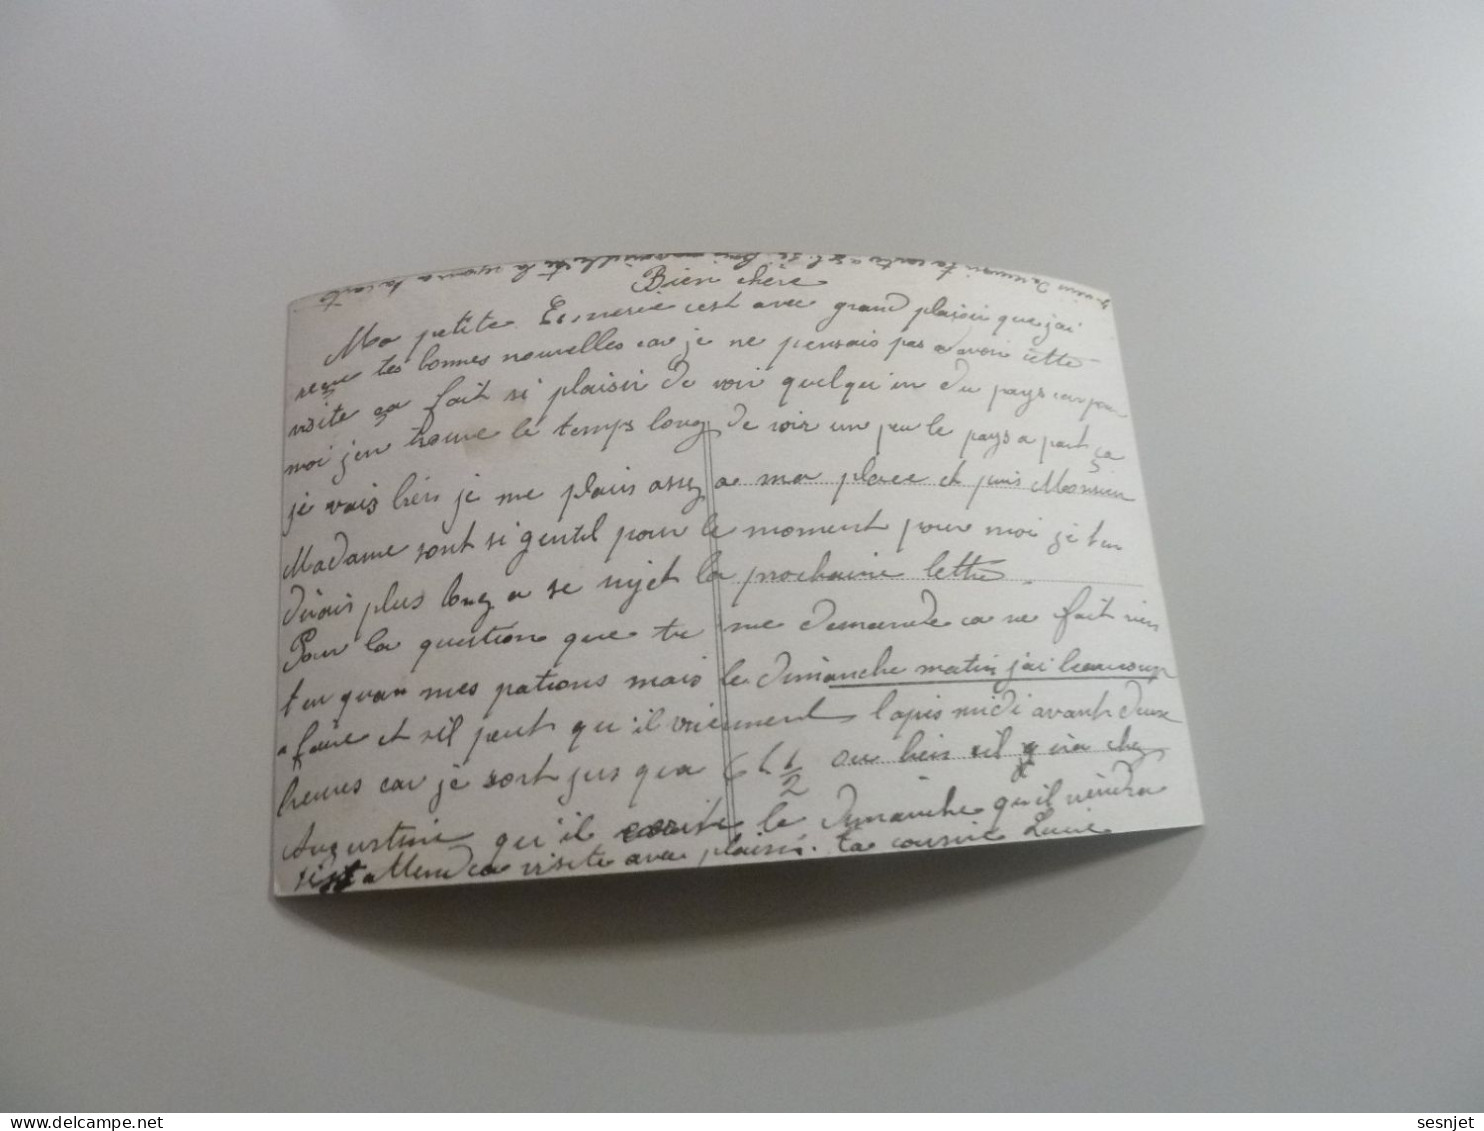 Bien chère
Ma petite c'est avec grand plaisir que j'ai
reçue tes bonnes nouvelles car je ne pensais pas a avoir cette
visite ça fait si plaisir de voir quelqu'un du pays car pour
moi j'en trouve le temps long de voir un peu le pays a part ça
je vais bien je me plais assez a ma place et puis Monsieur
Madame sont si gentil pour le moment pour moi je t'en
dirais plus long a se sujet la prochaine lettre.
Pour la question que tu me demande ca ne fait rien
tu quan mes patrons mais le dimanche matin j'ai beaucoup
a faire et sil peut qu'il viennent lapis midi avant deux
heures car je sort jus qua 6 h 1/2 ou bien sil y ira chez
Augustine qu'il écrite le dimanche qu'il viendra
attend ca visite avec plaisir. ta cousine Lucie
delcampe.net
sesnjet